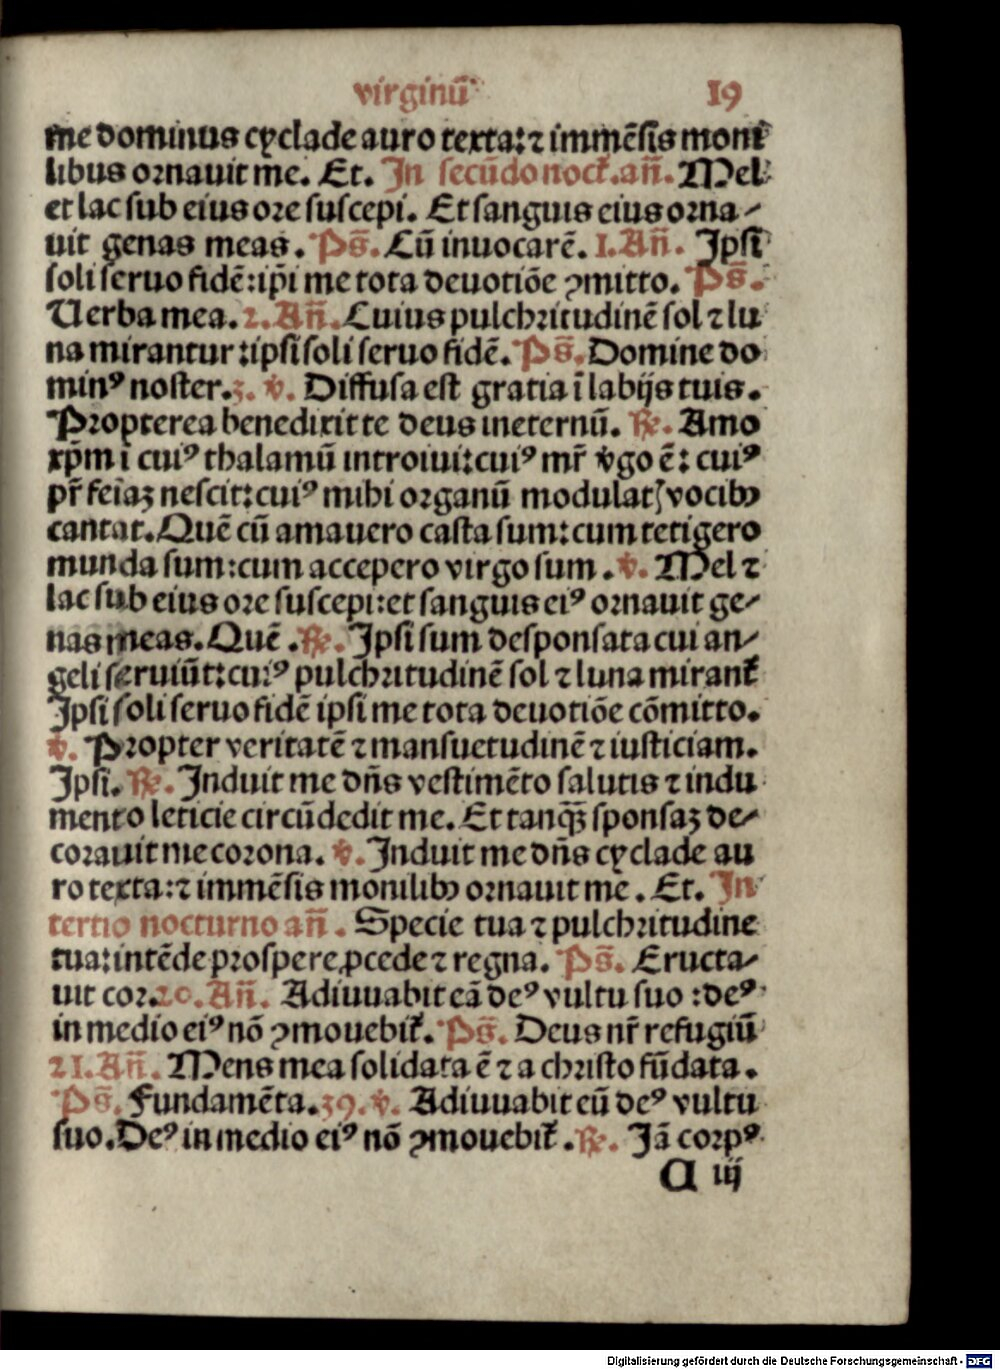 virginū 19
me dominus cyclade auro texta:⁊ immēsis moni
libus ornauit me. Et. In secūdo noct̄. añ. Mel
et lac sub eius ore suscepi. Et sanguis eius orna⸗
uit genas meas. Ps̄. Cū inuocarē. 1. Añ. Ipsi
soli seruo fidē:ip̄i me tota deuotiōe ꝯmitto. Ps̄.
Uerba mea. 2. Añ. Cuius pulchritudinē sol ⁊ lu
na mirantur:ipsi soli seruo fidē. Ps̄. Domine do
minꝰ noster. 3. ℣. Diffusa est gratia ī labijs tuis.
Propterea benedixit te deus ineternū. ℞. Amo
xp̄m ī cuiꝰ thalamū introiui:cuiꝰ mr̄ v̓go ē: cuiꝰ
pr̄ feīaꝫ nescit:cuiꝰ mihi organū modulatꝭ vocibꝰ
cantat. Quē cū amauero casta sum:cum tetigero
munda sum:cum accepero virgo sum. ℣. Mel ⁊
lac sub eius ore suscepi:et sanguis eiꝰ ornauit ge⸗
nas meas. Quē. ℞. Ipsi sum desponsata cui an⸗
geli seruiūt:cuiꝰ pulchritudinē sol ⁊ luna mirant̄
Ipsi soli seruo fidē ipsi me tota deuotiōe cōmitto.
℣. Propter veritatē ⁊ mansuetudinē ⁊ iusticiam.
Ipsi. ℞. Induit me dn̄s vestimēto salutis ⁊ indu
mento leticie circūdedit me. Et tanqꝫ̄ sponsaꝫ de⸗
corauit me corona. ℣. Induit me dn̄s cyclade au
ro texta:⁊ immēsis monilibꝰ ornauit me. Et. In
tertio nocturno añ. Specie tua ⁊ pulchritudine
tua:intēde prospere ꝓcede ⁊ regna. Ps̄. Eructa⸗
uit cor. 20. Añ. Adiuuabit eā deꝰ vultu suo :deꝰ
in medio eiꝰ nō ꝯmouebit̄. Ps̄. Deus nr̄ refugiū
21. Añ. Mens mea solidata ē ⁊ a christo fūdata.
Ps̄. Fundamēta. 39. ℣. Adiuuabit eū deꝰ vultu
suo. Deꝰ in medio eiꝰ nō ꝯmouebit̄. ℞. Jā corpꝰ
C iij
Digitalisierung gefördert durch die Deutsche Forschungsgemeinschaft - DFG